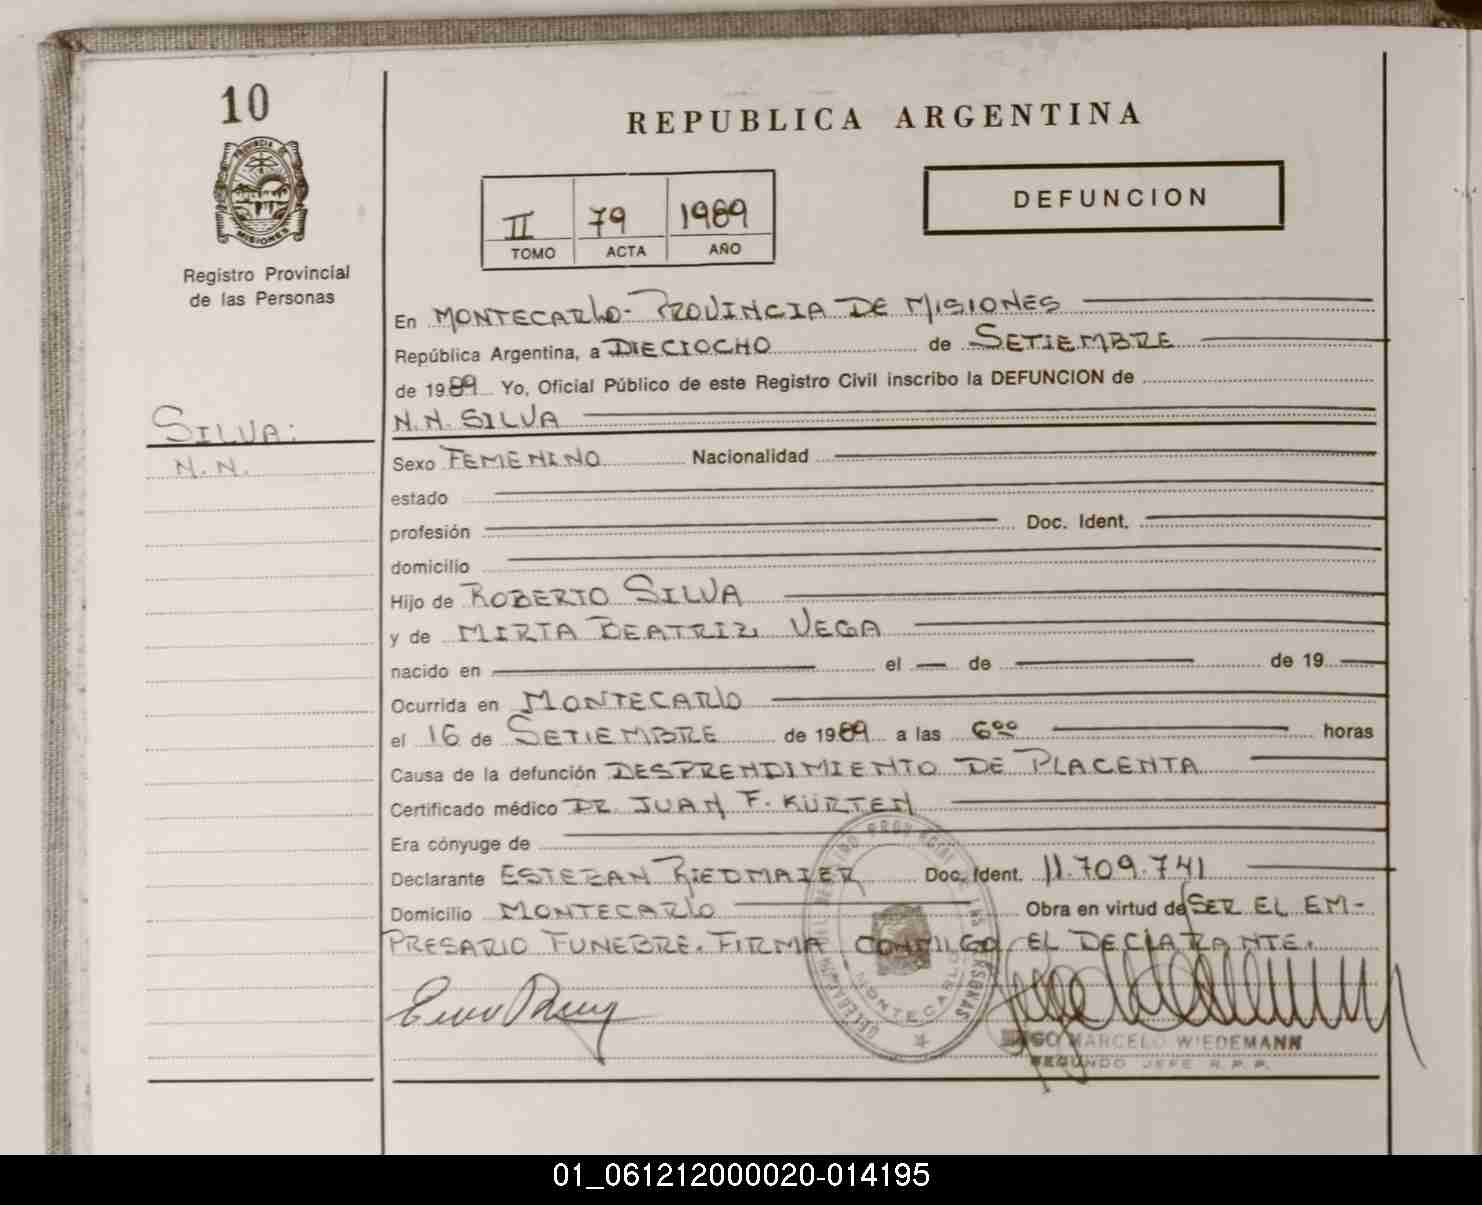 10
PROVINCIA DE
MISIONES
Registro Provincial
de las Personas
SILVA:
N.N.
REPUBLICA ARGENTINA
II 79 1989
TOMO ACTA AÑO
DEFUNCION
En MONTECARLO - PROVINCIA DE MISIONES
República Argentina, a DIECIOCHO de SETIEMBRE
de 1989 Yo, Oficial Público de este Registro Civil inscribo la DEFUNCION de
N.N. SILVA
Sexo FEMENINO Nacionalidad
estado
profesión Doc. Ident.
domicilio
Hijo de ROBERTO SILVA
y de MIRTA BEATRIZ VEGA
nacido en el de de 19
Ocurrida en MONTECARLO
el 16 de SETIEMBRE de 1989 a las 6 00 horas
Causa de la defunción DESPRENDIMIENTO DE PLACENTA
Certificado médico DR. JUAN F. KÜRTEN
Era cónyuge de
Declarante ESTEBAN RIEDMAIER Doc. Ident. 11.709.741
Domicilio MONTECARLO Obra en virtud de SER EL EM-
PRESARIO FUNEBRE. FIRMA CONMIGO EL DECLARANTE.
MONTECARLO
MARCELO WIEDEMANN
SEGUNDO JEFE R.P.P.
01_061212000020-014195